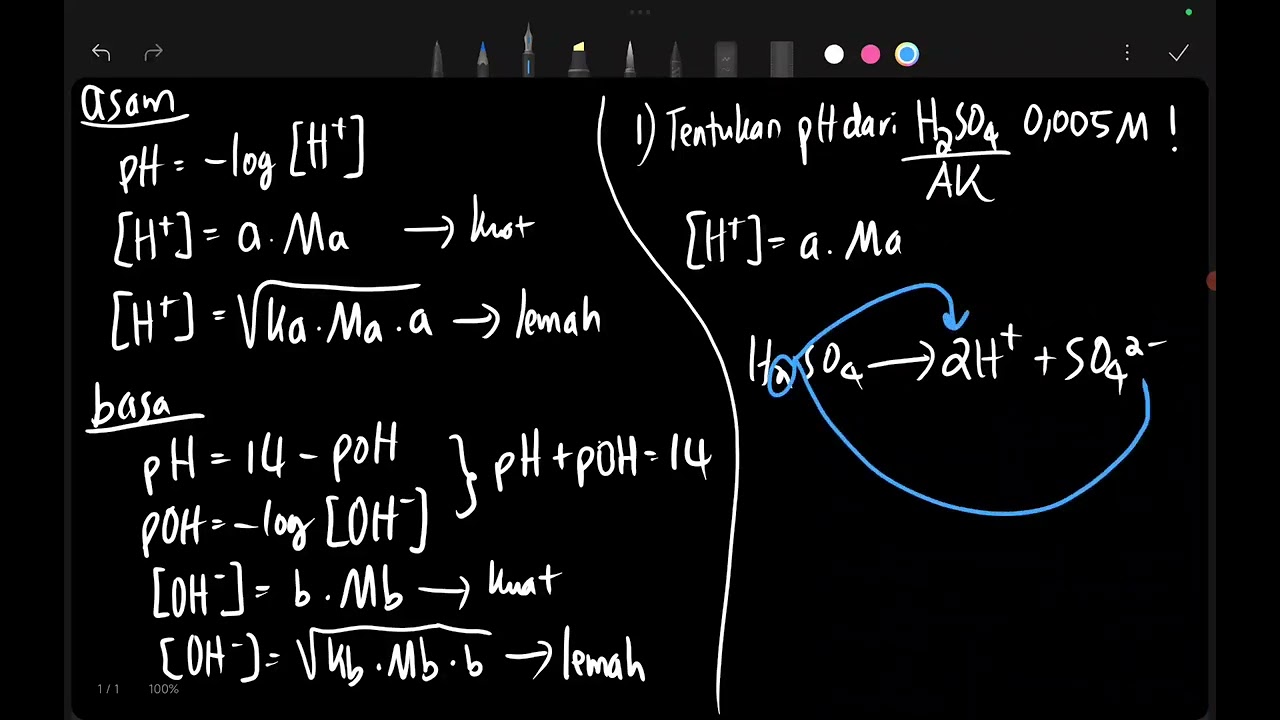 asam
pH = -log [H⁺]
[H⁺] = a . Ma → kuat
[H⁺] = √Ka . Ma . a → lemah
basa
pH = 14 - pOH } pH + pOH = 14
pOH = -log [OH⁻]
[OH⁻] = b . Mb → kuat
[OH⁻] = √Kb . Mb . b → lemah
1) Tentukan pH dari H₂SO₄ 0,005 M !
AK
[H⁺] = a . Ma
H₂SO₄ → 2H⁺ + SO₄²⁻
1 / 1 100%